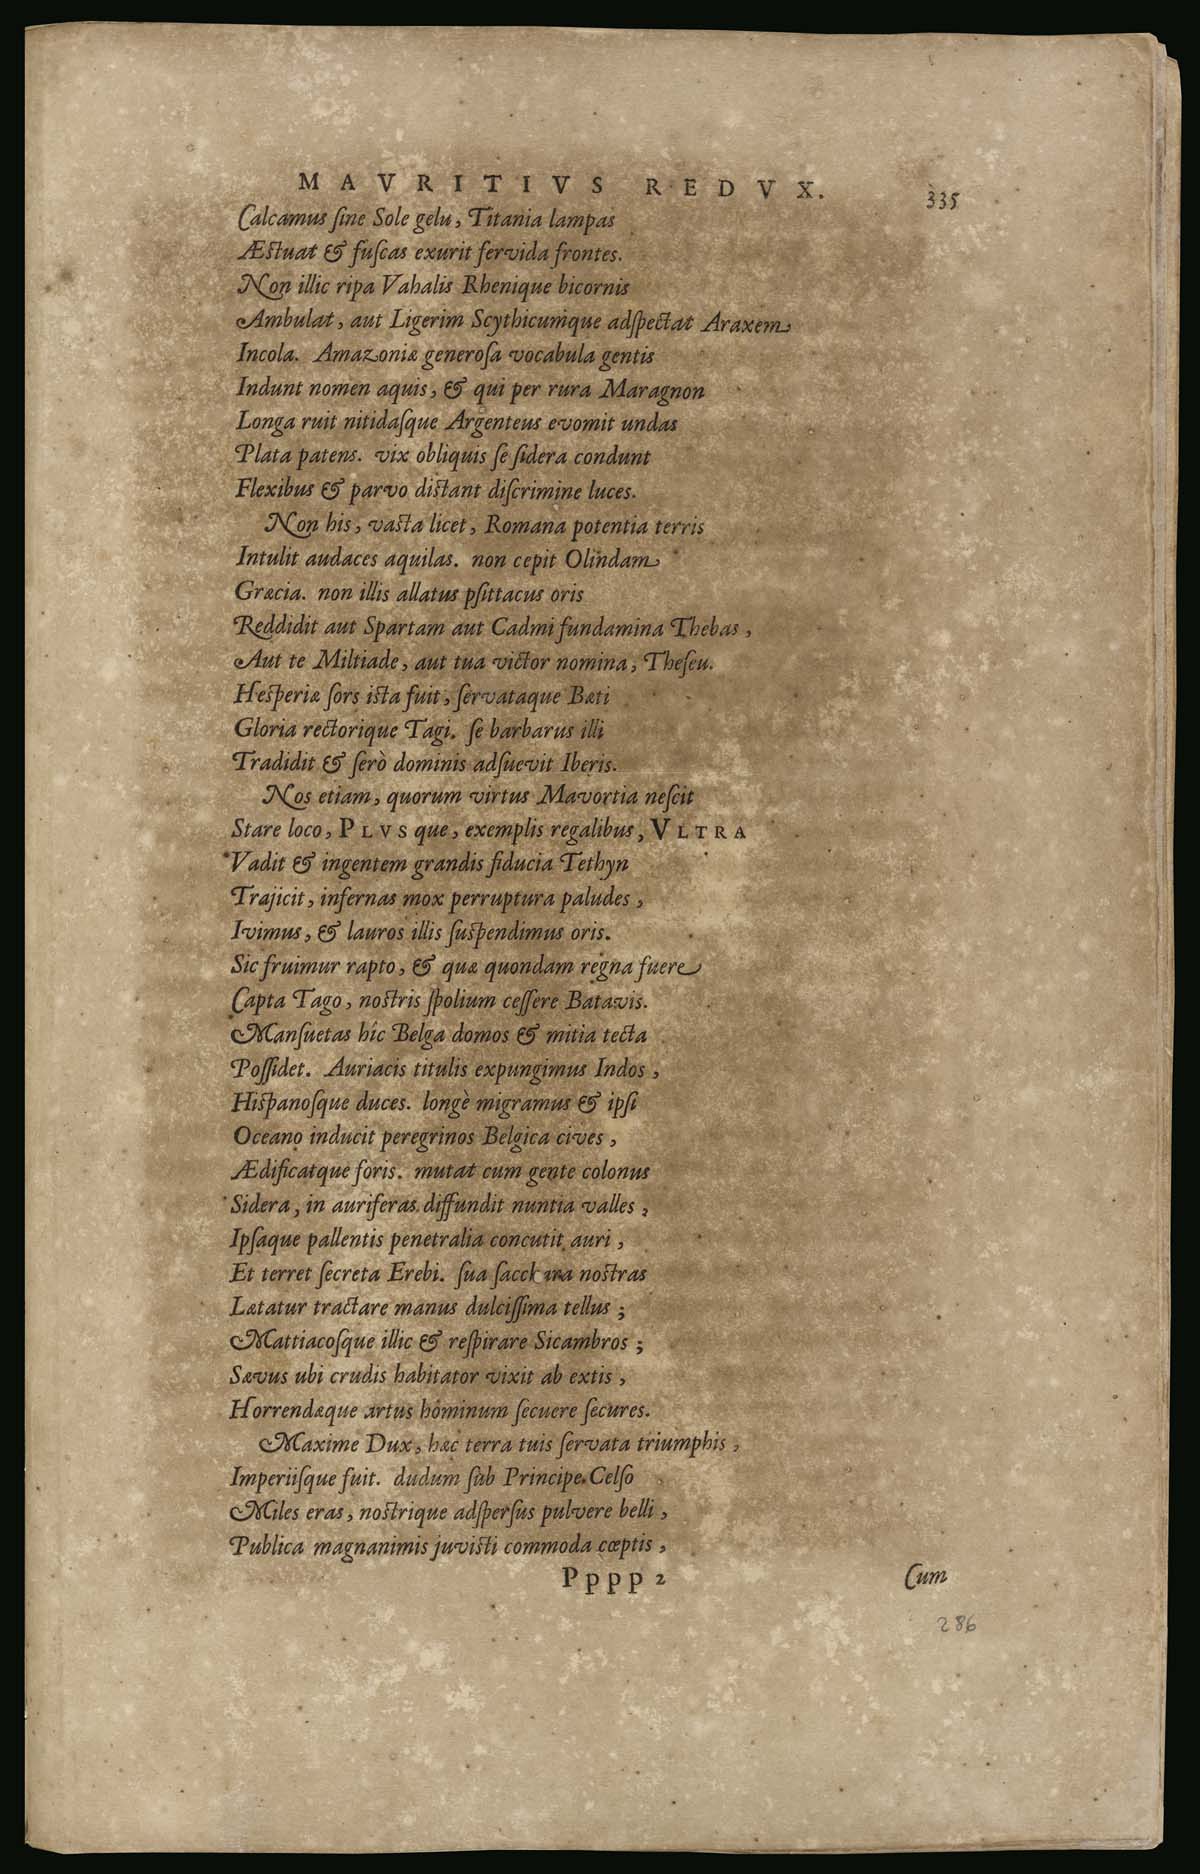 MAVRITIVS REDVX. 335
Calcamus ſine Sole gelu, Titania lampas
Æstuat & fuſcas exurit fervida frontes.
Non illic ripa Vahalis Rhenique bicornis
Ambulat, aut Ligerim Scythicumque adſpectat Araxem
Incola. Amazoniæ generoſa vocabula gentis
Indunt nomen aquis, & qui per rura Maragnon
Longa ruit nitidaſque Argenteus evomit undas
Plata patens. vix obliquis ſe ſidera condunt
Flexibus & parvo diſtant diſcrimine luces.
Non his, vaſta licet, Romana potentia terris
Intulit audaces aquilas. non cepit Olindam
Græcia. non illis allatus pſittacus oris
Reddidit aut Spartam aut Cadmi fundamina Thebas,
Aut te Miltiade, aut tua victor nomina, Theſeu.
Heſperiæ ſors iſta fuit, ſervataque Bæti
Gloria rectorique Tagi. ſe barbarus illi
Tradidit & ſerò dominis adſuevit Iberis.
Nos etiam, quorum virtus Mavortia neſcit
Stare loco, PLVSque, exemplis regalibus, VLTRA
Vadit & ingentem grandis fiducia Tethyn
Trajicit, infernas mox perruptura paludes,
Ivimus, & lauros illis ſuſpendimus oris.
Sic fruimur rapto, & quæ quondam regna fuere
Capta Tago, noſtris ſpolium ceſſere Batavis.
Manſuetas hîc Belga domos & mitia tecta
Poſſidet. Auriacis titulis expungimus Indos,
Hiſpanoſque duces. longè migramus & ipſi
Oceano inducit peregrinos Belgica cives,
Ædificatque foris. mutat cum gente colonus
Sidera, in auriferas diffundit nuntia valles,
Ipſaque pallentis penetralia concutit auri,
Et terret ſecreta Erebi. ſua ſacchara noſtras
Lætatur tractare manus dulciſſima tellus;
Mattiacoſque illic & reſpirare Sicambros;
Sævus ubi crudis habitator vixit ab extis,
Horrendæque artus hominum ſecuere ſecures.
Maxime Dux, hæc terra tuis ſervata triumphis,
Imperiiſque fuit. dudum ſub Principe Celſo
Miles eras, noſtrique adſperſus pulvere belli,
Publica magnanimis juviſti commoda cœptis,
Pppp 2 Cum
286